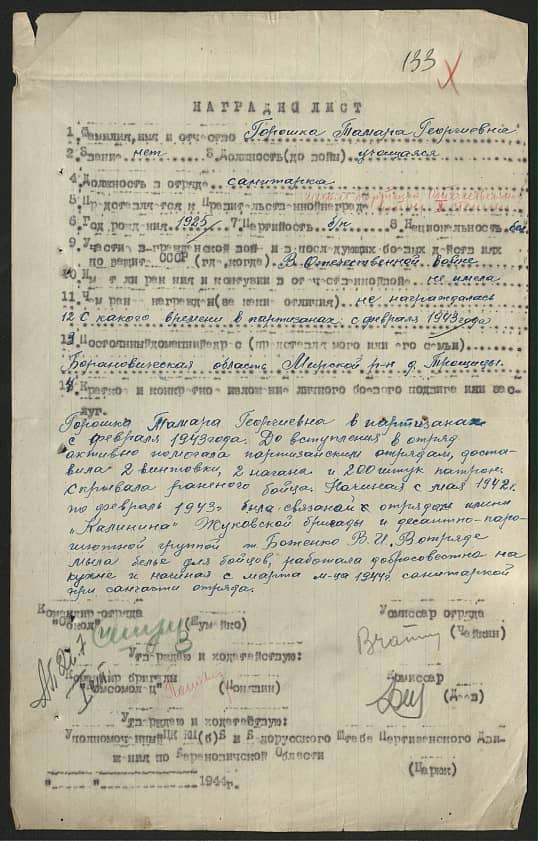 133
НАГРАДНО ЛИСТ
1. Фамилия, имя и отчество Горошка Тамара Георгиевна
2. Звание нет 3. Должность (до войн) учащаяся
4. Должность в отряде санитарка
5 Представляется к Правительственной награде
6. Год рождения 1925 7. Партийность б/п 8. Национальность бел
9. Участие в гражданской вой- и в последующих боевых действиях
по защит СССР (где, когда) В Отечественной войне
10 Имет ли ранния и контузии в отечественной войне не имела
11. Чем ран награжден (за какие отличия) не награждалась
12 С какого времени в партизанах с февраля 1943 года
13. Постоянный домашний адрес (представлямого или его семьи)
Барановическая область Мирской р-н д. Трощицы.
14. Кратко и конкретно изложение личного боевого подвига или зас-
луг.
Горошка Тамара Георгиевна в партизанах
с февраля 1943 года. До вступления в отряд
активно помогала партизанским отрядам, доста-
вила 2 винтовки, 2 нагана и 200 штук патрон.
Скрывала раненого бойца. Начиная с мая 1942г.
по февраль 1943г была связанай с отрядом имени
"Калинина" Жуковской бригады и десантно-паро-
шютной группой т. Боженко В. И. В отряде
мыла белье для бойцов, работала добросовестно на
кухне и начиная с марта м-ца 1944г. санитаркой
при санчасти отряда.
Командир отряда Комиссар отряда
(Шумейко) (Чайкин)
Утверждаю и ходатайствую:
Командир бригады Комиссар
"Комсомолец"
Утверждаю и ходатайствую:
Уполномоченный ЦК КП(б)Б и Белорусского Штаба Партизанского Дви-
жения по Барановичской Области
(Царюк)
"____"____________1944г.